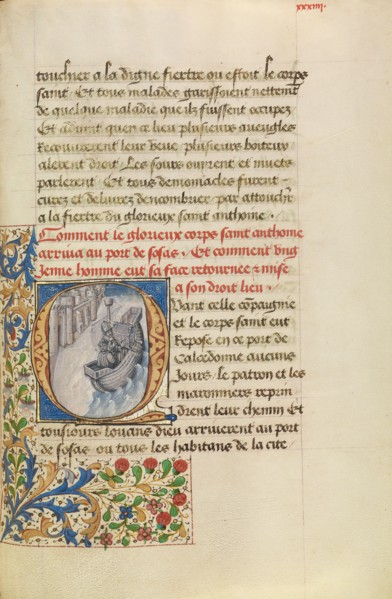 xxxiiii.
touchier a la digne fiertre ou estoit le corps
saint Et tous malades garissoient nettement
de quelque maladie que ilz fuissent occupez
Et advint quen ce lieu plusieurs aveugles
Recouvrerent leur veue plusieurs boiteux
alerent droit Les sours ouirent et muets
parlerent Et tous demoniacles furent
curez et delivrez dencombrier par attouchier
a la fiertre du glorieux saint anthoine .
Comment le glorieux corps saint anthoine
arriva au port de sosas . Et comment ung
Jenne homme eut sa face retournee & mise
a son droit lieu .
Quant celle cōpaignie
et le corps saint eut
Repose en ce port de
Calcedonne aucuns
Jours . le patron et les
maronniers reprin
drent leur chemin Et
tousiours louans dieu arriverent au port
de sosas ou tous les habitans de la cite